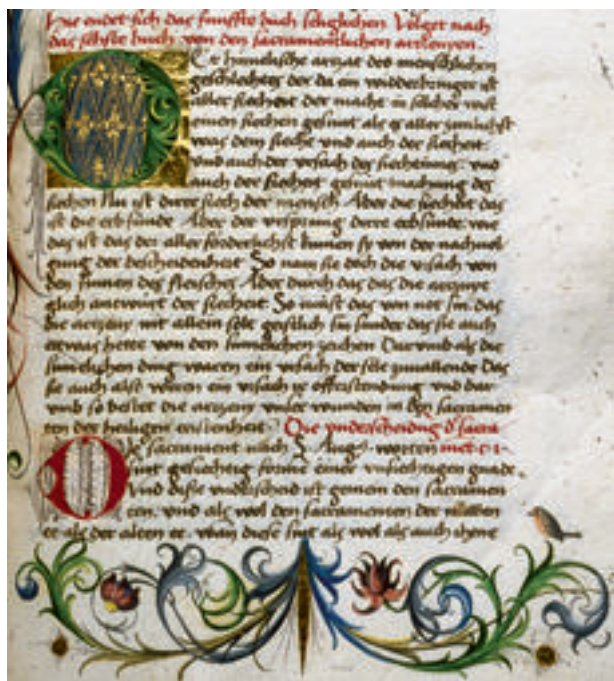 Hie endet sich das funffte buch seliglichen Volget nach
das sehste buch von den sacramentlichen arczenyen.
Er himelische arczat des menschlichen
geschlechtes der da ein widderbringer ist
aller siecheit der macht in solicher
einen siechen gesunt als es aller
was dem sieche vnd auch der siecheit
vnd auch der vrsach des siechtumes vnd
auch der siecheit gesunt machung des
siechen Nu ist dirre siech der mensch Aber die siecheit das
ist die erbsunde Aber der vrsprung dirre erbsunde wie
das ist das der aller
gung der bescheidenheit So nam sie doch die vrsach von
den sinnen des fleisches Aber durch das das die arczenye
glich antwurt der siecheit So must das von not sin das
die arczeny nit allein solt geistlich sin sunder das sie auch
etwas hette von den sinnelichen zeichen Dar vmb als die
sinnelichen ding waren ein vrsach der sele Das
sie auch also weren ein vrsach ir offerstendung vnd dar
vmb so bestet die arczeny vnser wunden in den sacramen
ten der heiligen cristenheit Die vnderscheidung d' sacra
As sacrament nach S Augs worten
sint gesiechtig forme einer vnsiechtigen gnade.
Vnd diese vnderscheid ist gemein den sacramen
ten. vnd als wol den sacramenten der nuwen
ee als der alten ee. Wan diese sint als wol als auch ihene